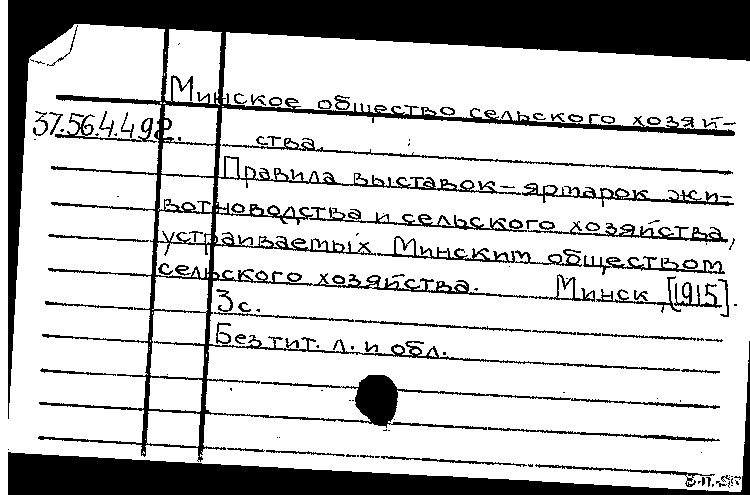 Минское общество сельского хозяй-
37.56.4.498.
ства.
Правила выставок-ярмарок жи-
вотноводства и сельского хозяйства,
устраиваемых Минским обществом
сельского хозяйства. Минск, [1915].
3с.
Без тит. л. и обл.